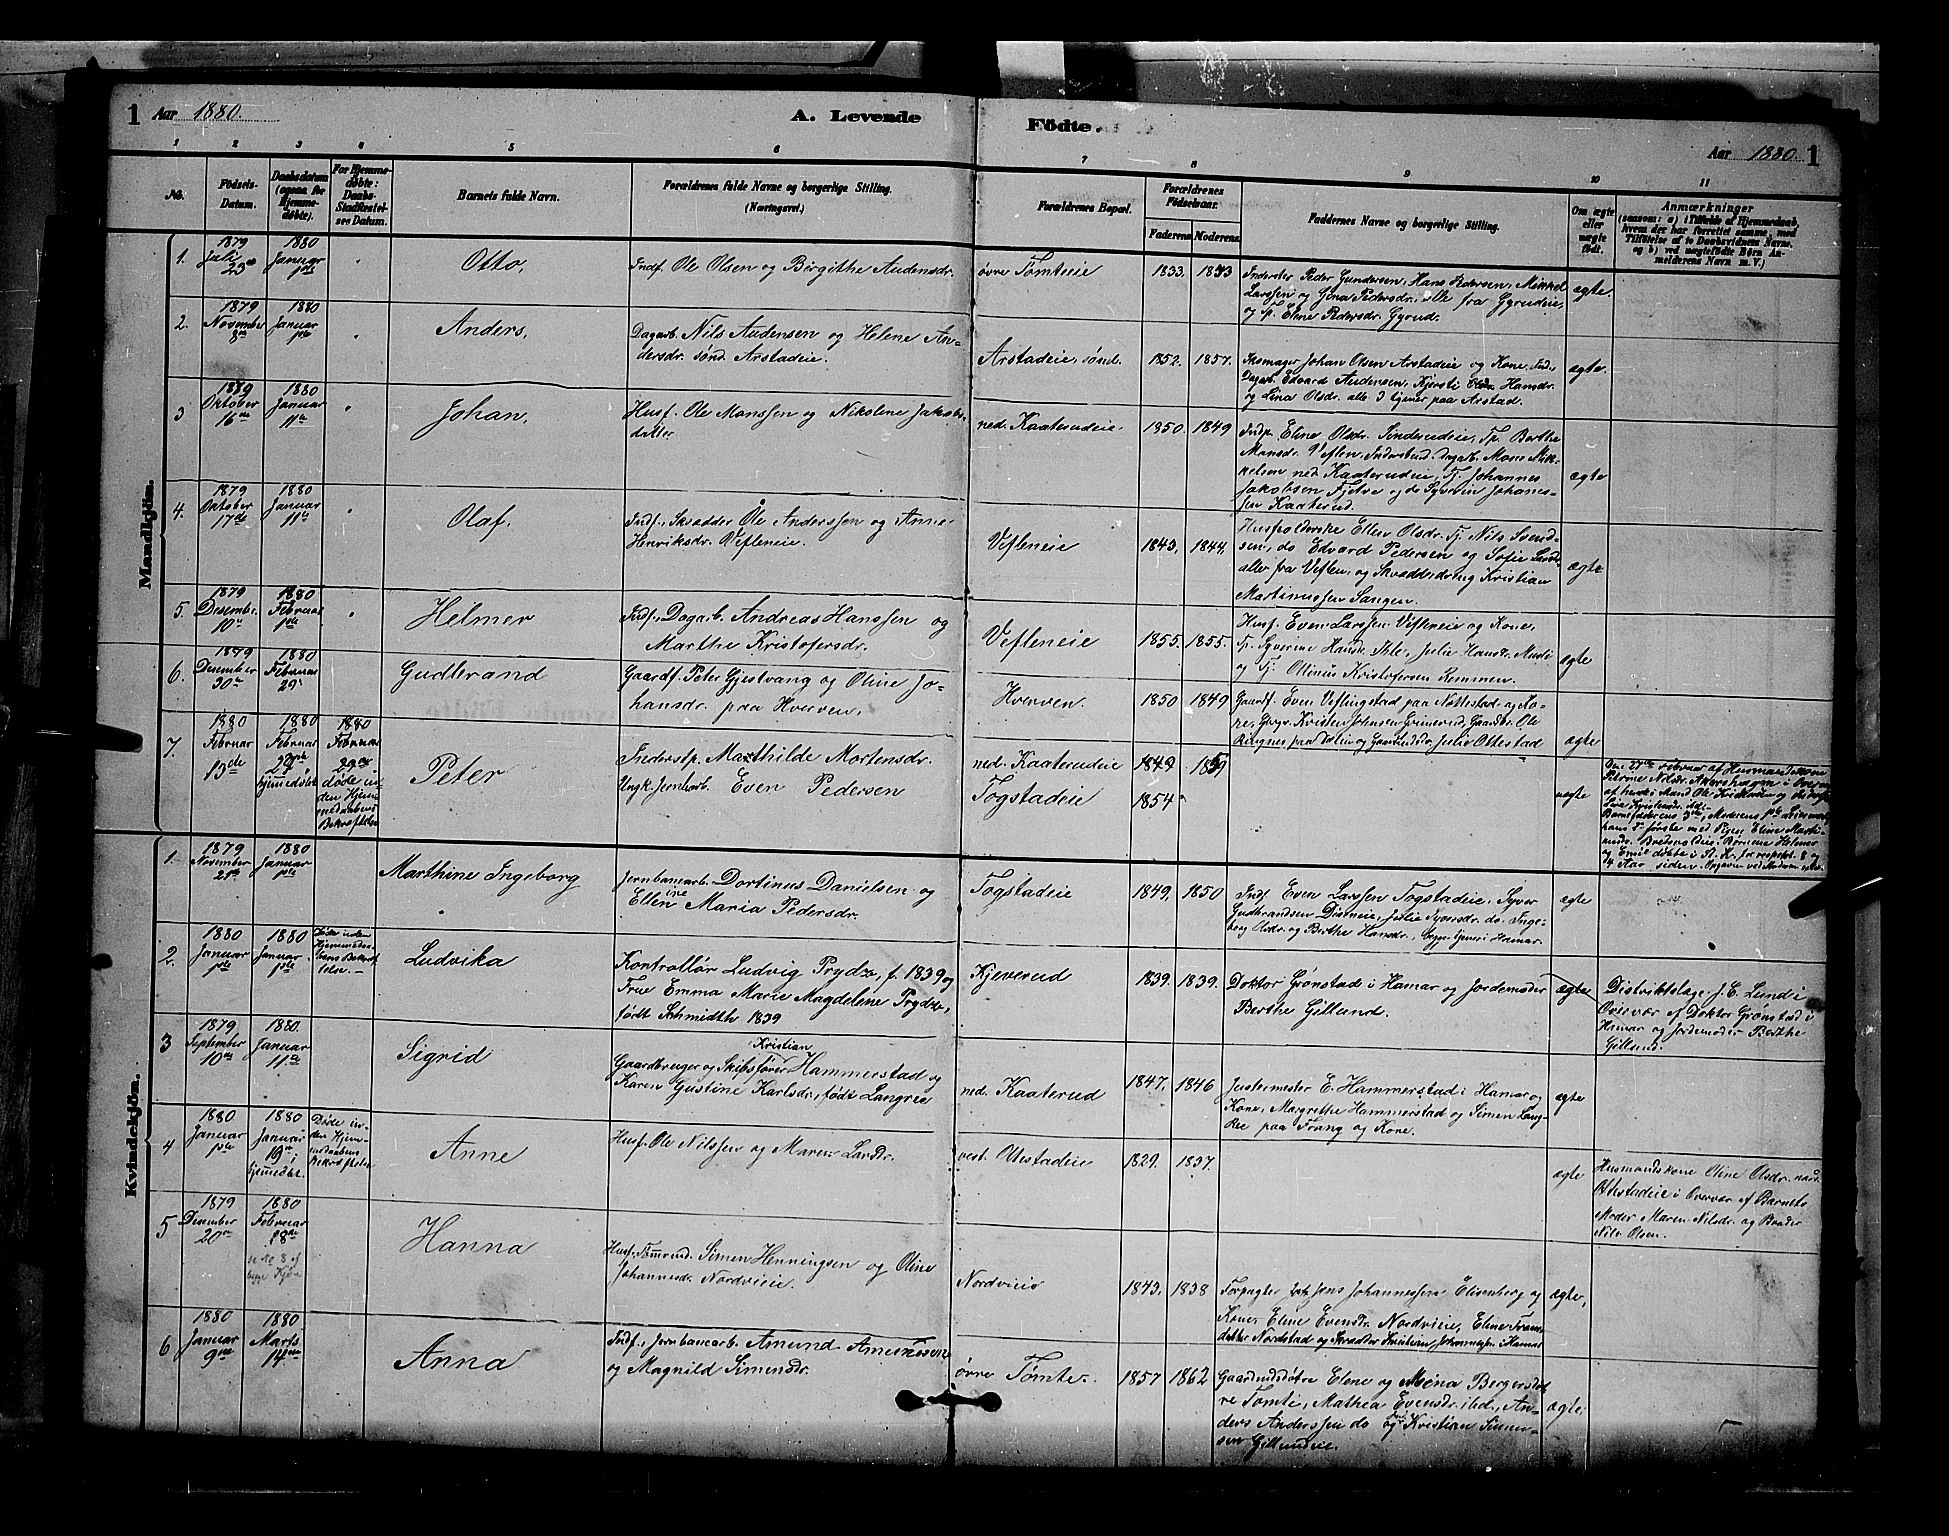 1 Aar 1880.
A. Levende Födte.
Aar 1880. 1
1 2 3 4 5 6 7 8 9 10 11
No.
Födsels-
Datum.
Daabsdatum
(ogsaa for
Hjemme-
døbte).
For Hjemme-
døbte:
Daabs-
Stadfæstel-
ses Datum.
Barnets fulde Navn.
Forældrenes fulde Navne og borgerlige Stilling.
(Næringsvei.)
Forældrenes Bopæl.
Forældrenes
Födselsaar.
Faderens Moderens.
Faddernes Navne og borgerlige Stilling.
Om ægte
eller
uægte
født.
Anmærkninger
(saasom: a) i Tilfælde af Hjemmedaab,
hvem der har forrettet samme, med
Tilføielse af to Daabsvidners Navne,
og b) ved uægtefødte Børn An-
melderens Navn m. V.)
Mandkjön.
1.
1879
Juli
1880
Januar
1ste
Otto,
Indf. Ole Olsen og Birgithe Audensdr.
øvre Tømteeie
1833.
Inderster Peder Gundersen, Hans Pedersen, Mikkel
Larssen og Gina Pedersdr. alle fra Gyrudeie,
og P. Eline Pedersdr. Gyrud.
ægte.
2.
1879
November
8de
1880
Januar
1ste
Anders,
Dagarb. Nils Audensen og Helene An-
dersdr. sønd. Arstadeie.
Arstadeie, sønd.
1852. 1857.
Johan Olsen Arstadeie og Kone, Ind.
Dagarb. Edvard Audensen, Kjersti Hansdr.
og Lina Olsdr. alle 3 tjener paa Arstad.
ægte.
3
1879
Oktober
16de
1880
Januar
11te
Johan,
Husf. Ole Monssen og Nikolene Jakobs-
datter
ned. Kaaterudeie
1850. 1849
Indp. Eline Olsdr. Sinderudeie, Tp. Berthe
Mansdr. Veflen, Dagarb. Mons Mik-
kelsen ned. Kaaterudeie, Tj. Johannes
Jakobsen Fjetre og do Syverin Johanes-
sen Kaaterud.
ægte
4.
1879
Oktober
17de
1880
Januar
11te
Olaf.
Indf., Skrædder Ole Anderssen og Anne
Henriksdr. Vefleneie.
Vefleneie
1843. 1844.
Husholderske Ellen Olsdr. Tj. Nils Svend-
sen, do Edvard Pedersen og Sofie
alle fra Veflen, og Skrædderdreng Kristian
Martinussen Sangen.
ægte
5.
1879
Desember.
10de
1880
Februar
1ste
Helmer
Indf., Dagarb. Andreas Hanssen og
Marthe Kristofersdr.
Vefleneie
1855. 1855.
Husf. Even Larssen Vefleneie og Kone,
Tp. Syverine Hansdr. Ihle, Julie Hansdr.
og Tj. Ottinus Kristofersen Kommen.
ægte
6.
1879
Desember
30te
1880
Februar
29de
Gudbrand
Gaardf. Peter Gjestvang og Oline Jo-
hansdr. paa Hverven.
Hverven.
1850 1849
Gaardf. Even Veflingstad paa Nøttestad og
Kristen Johnsen Grimerud, Gaardbr. Ole
Ringnes paa Dælin og Julie Ottestad
ægte
7.
1880
Februar
13de
1880
Februar
27de
hjemmedøbt
1880
Februar
døde in-
den Hjem-
medaabens
Bekræftelse
Peter
Inderstp. Mathilde Mortensdr.
Ungk. Jernbarb. Even Pedersen
ned. Kaaterudeie
Togstadeie
1849
1854
uægte
Den 27de Februar af Husmandskone
Kvindekjön.
1.
1879
November
21de
1880
Januar
1ste
Marthine Ingeborg
Jernbanearb. Dortinus Danielsen og
Elline Maria Pedersdr.
Togstadeie
1849. 1850
Indf. Even Larssen Togstadeie, Syver
Gudbrandsen Dismeie, Julie Syversdr. do. Inge-
borg Olsdr. og Berthe Hansdr., tjener i Hamar.
ægte
2.
1880
Januar
1ste
1880
Januar
1ste
Døde inden
Hjemmedaa-
bens Bekræf-
telse. –
Ludvika
Kontrollør Ludvig Prydz, f. 1839 og
Frue Emma Marie Magdelene Prydz,
født Schmidth 1839
Kjeverud
1839. 1839.
Doktor Grønstad i Hamar og Jordemoder
Berthe Gillund.
ægte
Distriktslæge J. E. Lund i
Overvær af Doktor Grønstad i
Hamar og Jordemoder Berthe
Gillund.
3
1879
September
10de
1880
Januar
11te
Sigrid
Kristian
Gaardbruger og Skibsfører Hammerstad og
Karen Gustine Karlsdr., født Langree
ned. Kaaterud
1847. 1846
Justermester E. Hammerstad i Hamar og
Kone, Margrethe Hammerstad og Simen Lang-
Ree paa Frang og Kone.
ægte
4
1880
Januar
1ste
1880
Januar
19de
hjemmedøbt.
Døde in-
den Hjem-
medaabens
Bekræftelse
Anne
Husf. Ole Nilssen og Maren Larsdr.
vest. Ottestadeie
1829. 1837.
ægte
Husmandskone Oline Olsdr. nord.
Ottestadeie i Overvær af Barnets
Moder Maren Nilsdr. og Broder
Nils Olsen.
5
1879
Desember
20de
1880
Februar
8de
se No 8 af
Hanna
Husf., Tømrmd. Simen Henningsen og Oline
Johannesdr. Nordvieie.
Nordvieie
1843. 1838
Forpagter Jens Johannessen Elisenberg og
Kone, Eline Evensdr. Nordvieie, Eline Frans-
datter Nordstad og Skrædder Kristian Johannessen Hamar
ægte,
6
1880
Januar
9de
1880
Marts
14de
Anna
Indf., Jernbanearb. Amund Amundsen
og Magnild Simensdr.
øvre Tømte.
1857 1862
Gaardmdsdøtre Elene og Mina Bergersdtr.
øvre Tomte, Mathea Evensdr. ibd., An-
ders Anderssen do og Kristian Simen-
sen Gillundeie.
ægte.